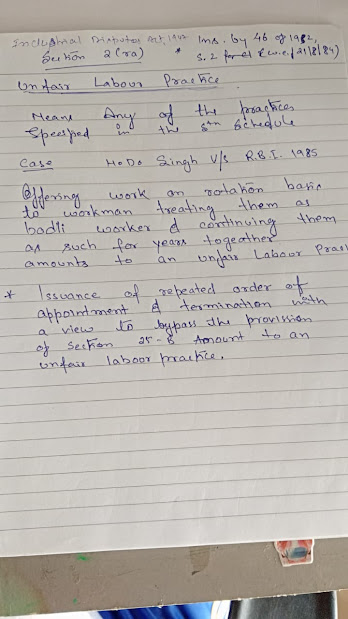 Industrial Disputes Act, 1947 Ins. by 46 of 1982,
Section 2(ra) * S. 2 (w.e.f 21/8/84)
Unfair Labour Practice
Means Any of the practices
Specified in the 5th Schedule
Case H.D. Singh V/s R.B.I. 1985
Offering work on rotation basis
to workman treating them as
badli worker & continuing them
as such for years together
amounts to an unfair Labour Prac
* Issuance of repeated order of
appointment & termination with
a view to bypass the provission
of section 25-B Amount to an
unfair laboor practice.